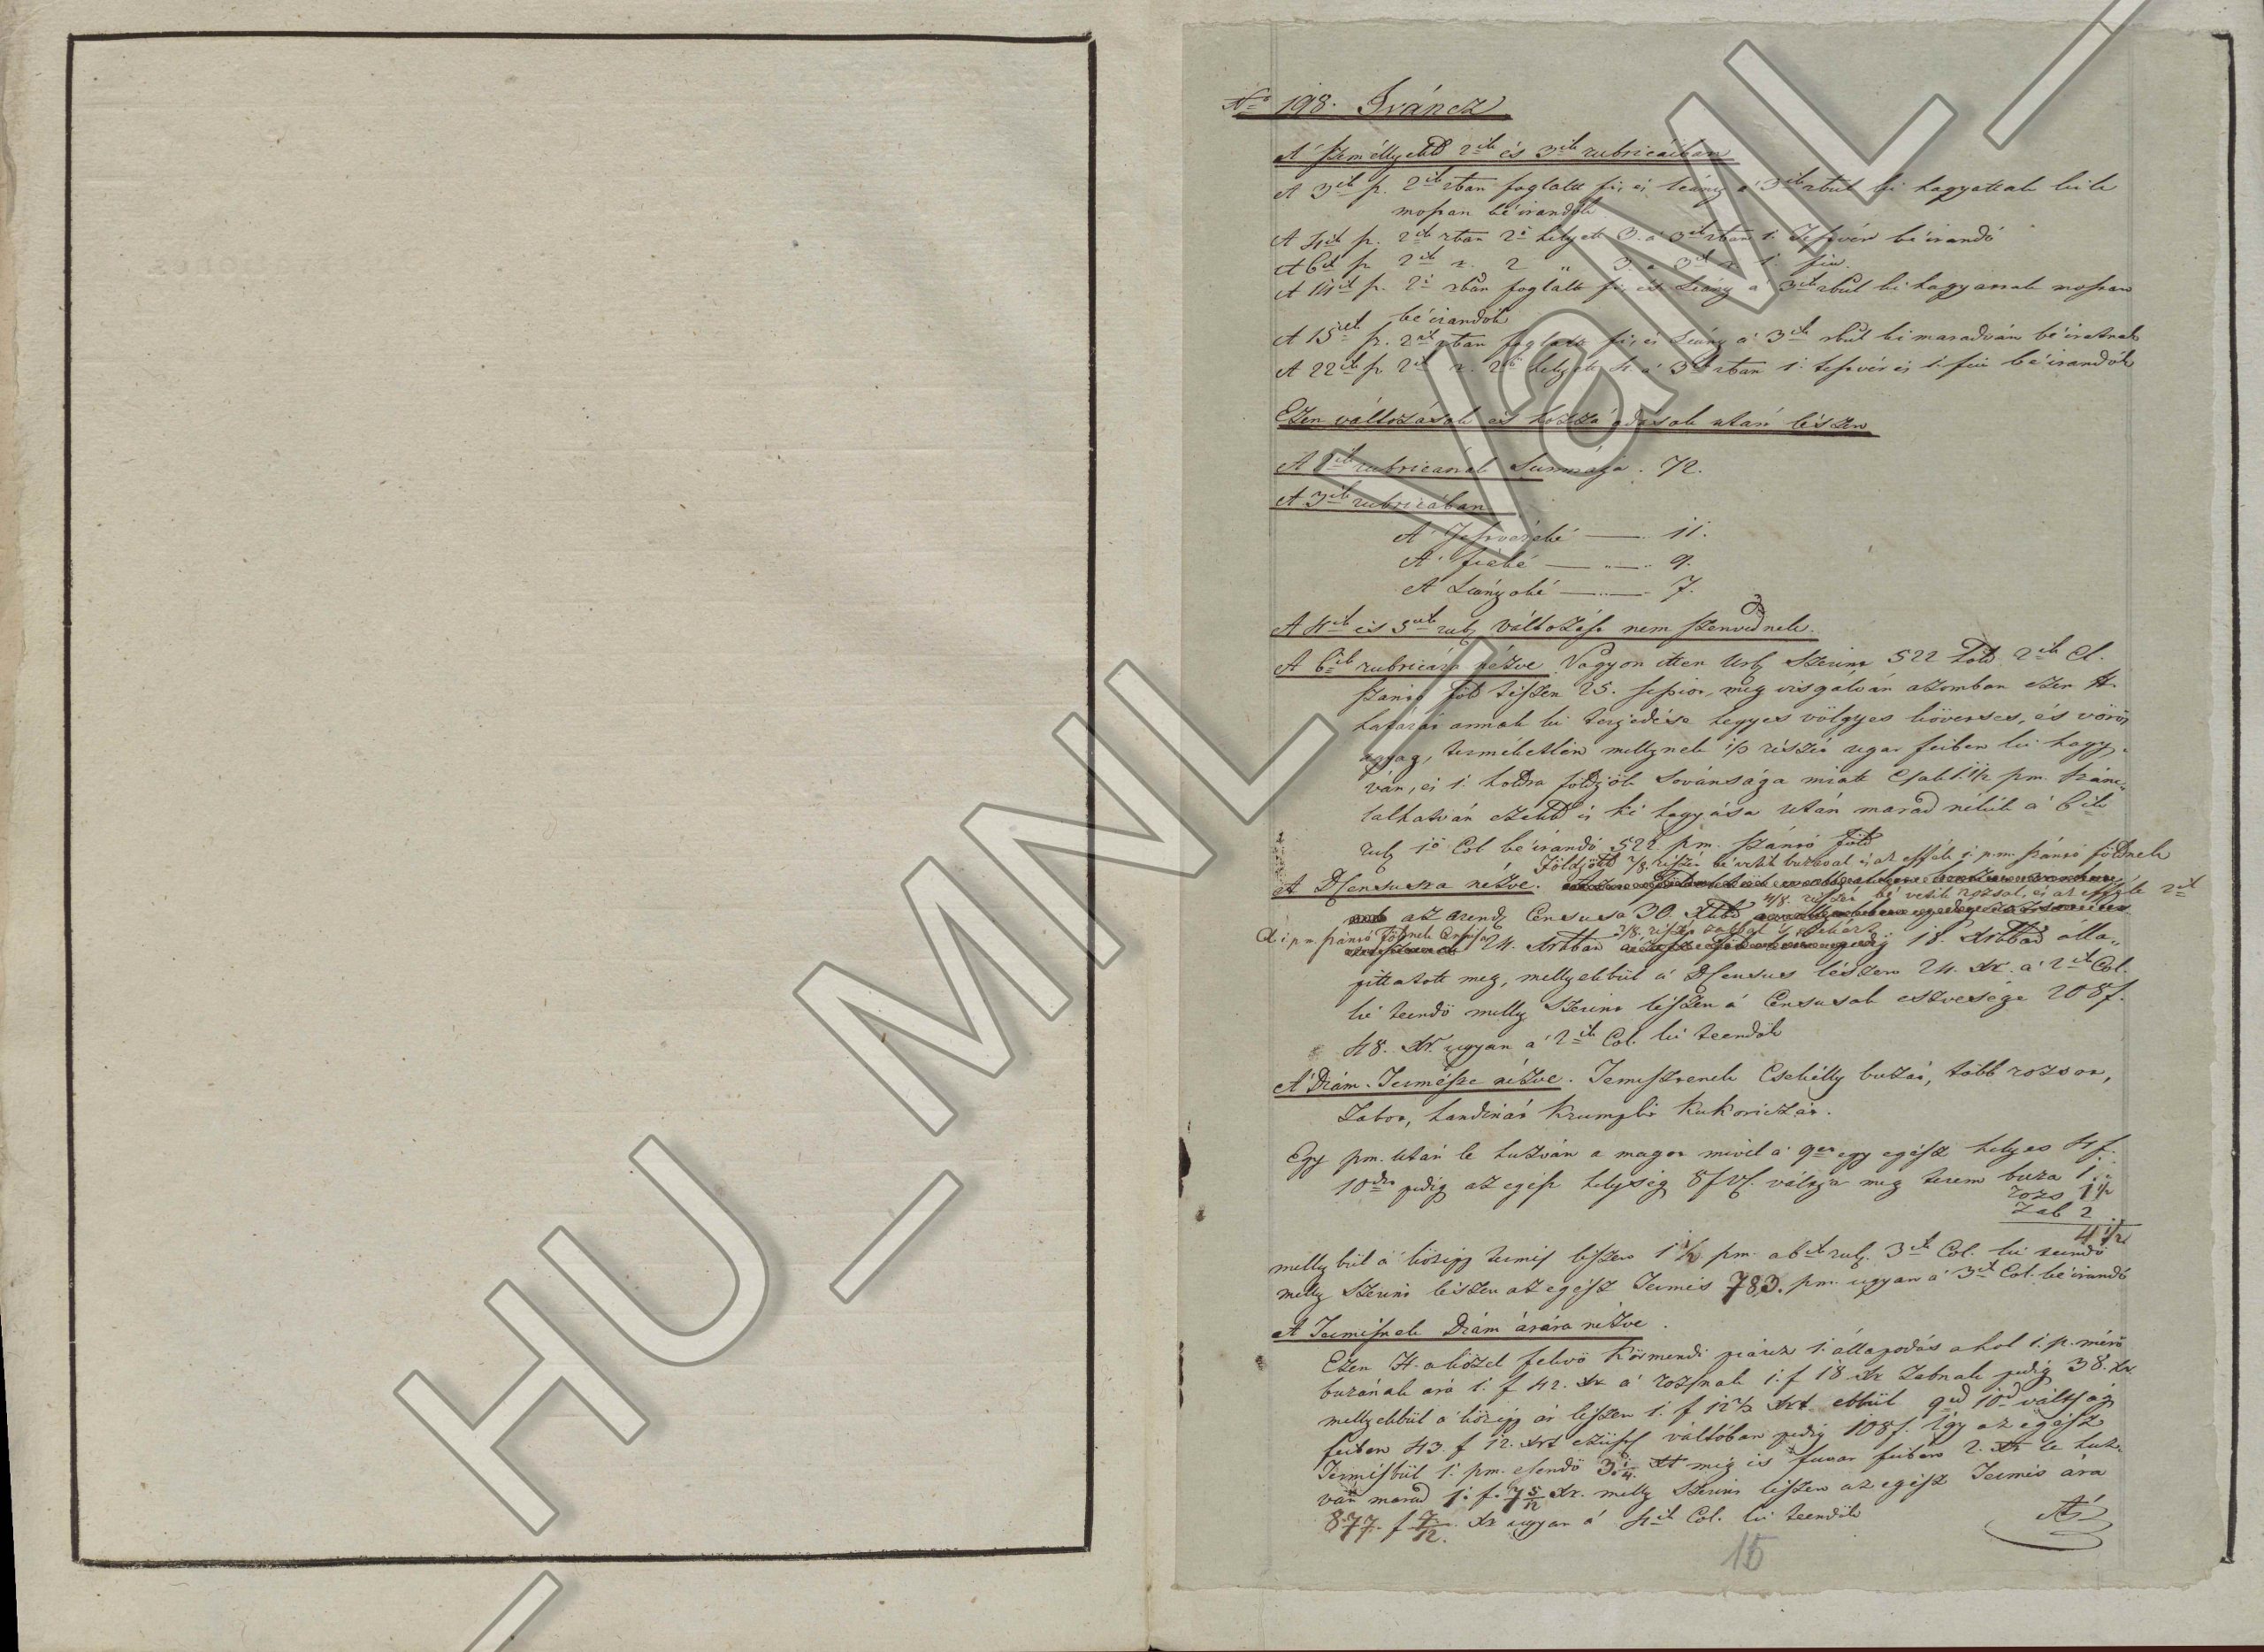 No 198. Iváncz
A' személlyek 2ik és 3ik rubricáiban
A 3ik p. 2ik rban foglalt fi, és leány a' 3ik rbul ki hagyattak kik
mossan bé irandók
A 4ik p. 2ik rban 2ő helyett 3. a' 3ik rban 1. Testvér bé irandó
A 6ik p. 2ik r. 2 „ 3. a 3ik r. 1. fiu.
A 14ik p. 2ik rban foglalt fi, és Leány a' 3ik rbul ki hagyattak mossan
bé irandók
A 15ik p. 2ik rban foglalt fi, és Leány a' 3ik rbul ki maradván bé iratnak
A 22ik p. 2ik r. 2ő helyett 4 a' 3ik rban 1. testvér és 1. fiu bé irandók
Ezen változások és hozzá adások után lészen
A 2ik rubricának Summája. 72.
A 3ik rubricában
A' Testvéreké — 11.
A' fiaké — „ — 9.
A Leányoké — „ — 7.
A 4ik és 5ik rub. változást nem szenvednek.
A 6ik rubricára nézve. Vagyon itten Urb. Szerint 522 hold 2ik Cl.
szántó föld tészen 25. sessiot, meg visgálván azomban ezen H.
határát annak ki terjedése hegyes völgyes köverses, és vörös
agyag, terméketlen mellynek 1/3 részét ugar feiben ki hagy-
ván, és 1. holdra földjök Soványsága miatt Csak 1. 1/2 pm. számi-
talhatván ezekk is ki hagyása után marad nékik a' 6ik
rub 1ő Col bé irandó 522 pm. szántó föld
Földjök 1/8. részét bé vetik buzával és az efféle 1. p.m. szántó földnek
A DCensusra nézve.
4/8. részét bé vetik rozsal, és az efféle 2ik
az arend. Censusa 30. Xrbk
Cl 1 p.m. szántó földnek Censusa 3/8. részét zabbal
24. Xrbban pedig 18. Xrbban álla-
pittatott meg, mellyekbül a' DCensus lészen 24. Xr. a' 2ik Col.
ki teendő melly Szerint lészen a' Censusok eszvesége 208f.
48. Xr. ugyan a' 2ik Col. ki teendők
A' Diám. Termésre nézve. Temesztenek Csekélly buzát, több rozsot,
Zabot, handinát Krumplit Kukoriczát.
Egy pm. után le huzván a magot mivel a' 9et egy egész helyes 4f.
10det pedig az egész helység 8f Vf. váltja meg terem buza 1. „
rozs 1 1/2
Zab 2
4 1/2
mellybül a' közép termés lészen 1 1/2. pm. a 6ik rub. 3ik Col. ki teendő
melly Szerint lészen az egész Termés 783. pm. ugyan a' 3ik Col. bé irandó
A' Termésnek Diám árára nézve.
Ezen H. a közel fekvő Körmendi piacz 1. állapodás ahol 1. p. mérő
buzának ára 1. f 42. Xr a' rozsnak 1. f 18 Xr Zabnak pedig 38. Xr.
mellyekbül a' közép ár lészen 1. f 12 2/3 Xrt ebbül 9ed 10ed váltság
feiben 43. f 12. Xrt ezüst váltóban pedig 108f. így az egész
Termésbül 1. pm. esendő 3 1/4. Xt még is fuvar feiben 2. Xr le huz-
ván marad 1. f. 7 5/12 Xr. melly Szerint lészen az egész Termés ára
877. f 7/12. Xr ugyan a' 4ik Col. ki teendők
15